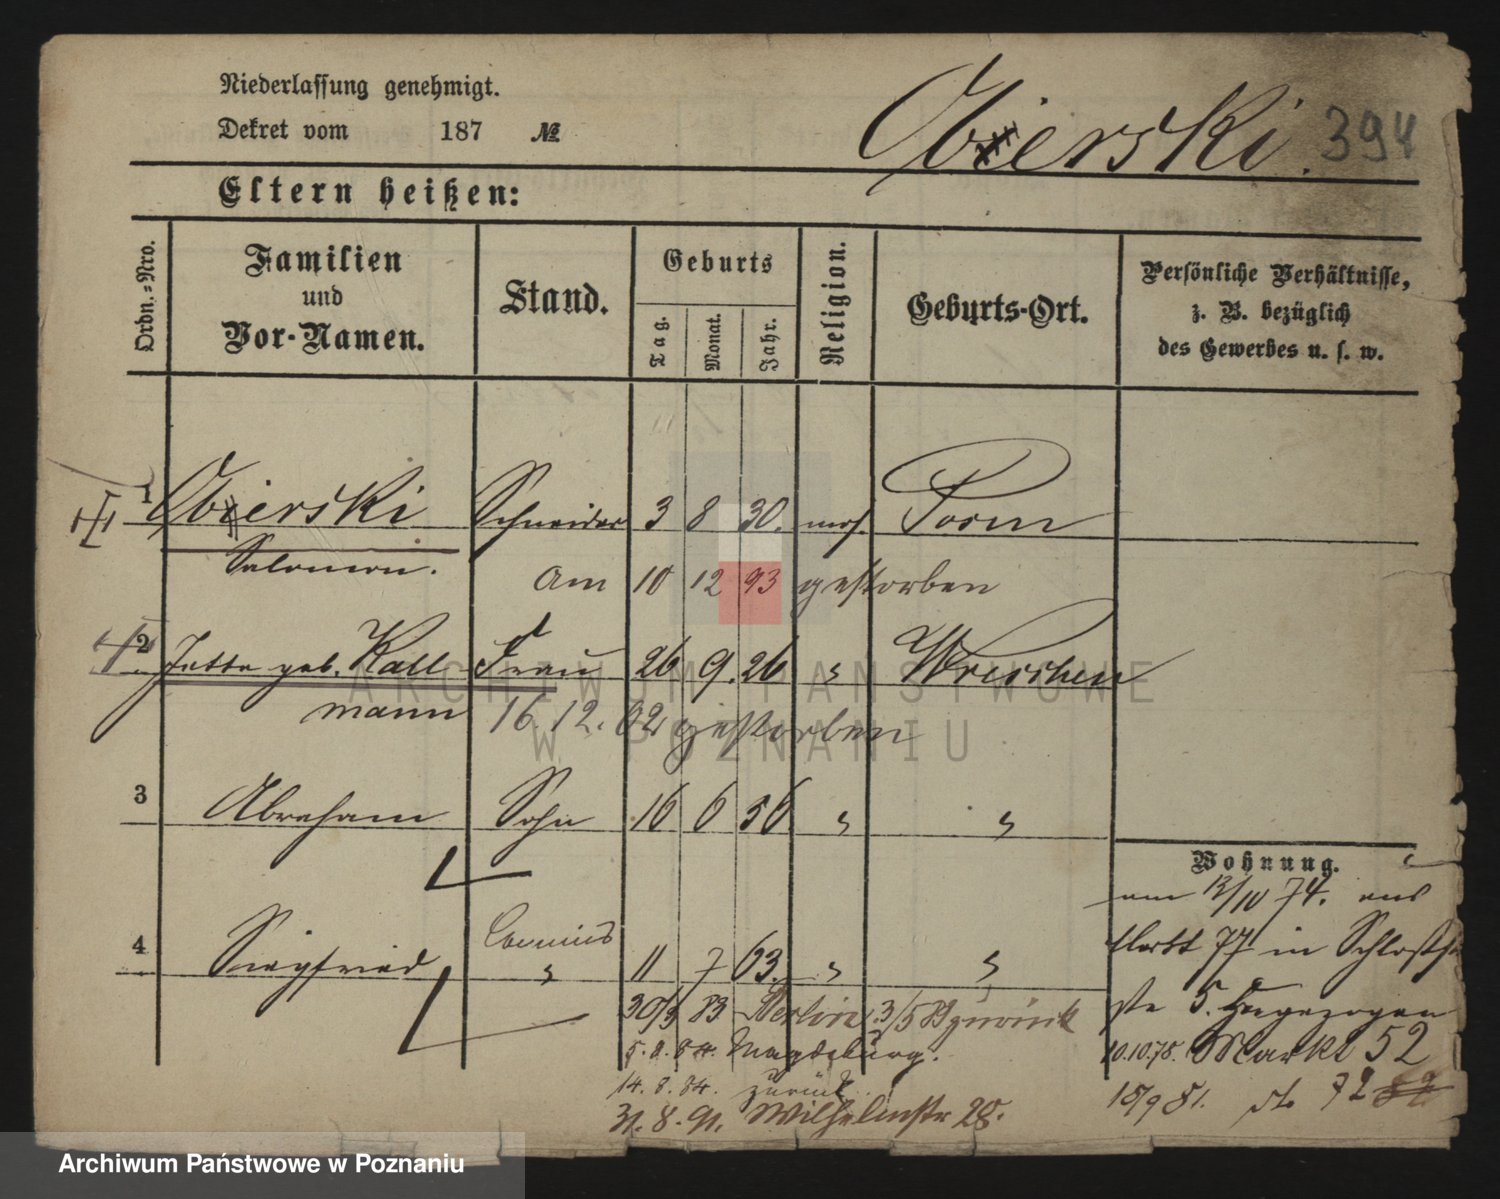 Niederlassung genehmigt.
Dekret vom 187 №
Obierski. 394
Eltern heißen:
Ordn.-Nro.
Familien und Vor-Namen.
Stand.
Geburts
Tag. Monat. Jahr.
Religion.
Geburts-Ort.
Persönliche Verhältnisse,
z. B. bezüglich
des Gewerbes u. s. w.
1 Obierski Schneider 3 8 30. mos. Posen
Salomon. am 10 12 93 gestorben
2 Jette geb. Kall Frau 26 9. 26 " Wreschen
mann 16. 12. 02 gestorben
3 Abraham Sohn 16 6 56 " "
4 Siegfried Commis " 11 7 63. " "
30/3 83 Berlin. 3/5 83 zurück
5. 8. 84. Magdeburg.
14. 8. 84. zurück
31. 8. 91. Wilhelmstr 28.
Wohnung.
am 13/10 74. aus
Markt 77 in Schloßstr
5. Umgezogen
10.10.78. Markt 52
15/9 81. do 72
ARCHIWUM PAŃSTWOWE
W POZNANIU
Archiwum Państwowe w Poznaniu